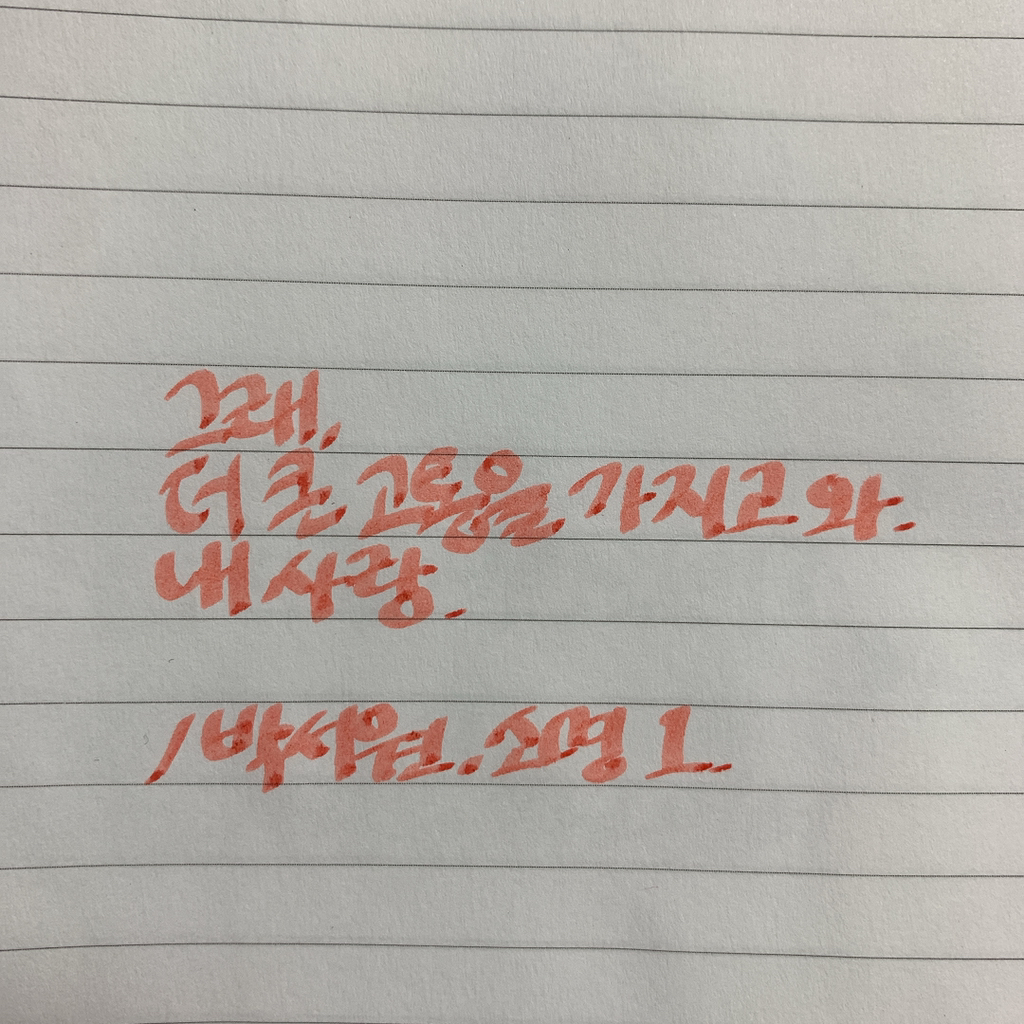 그래,
더 큰 고통을 가지고 와.
내 사랑.
/박서원.소명 1..